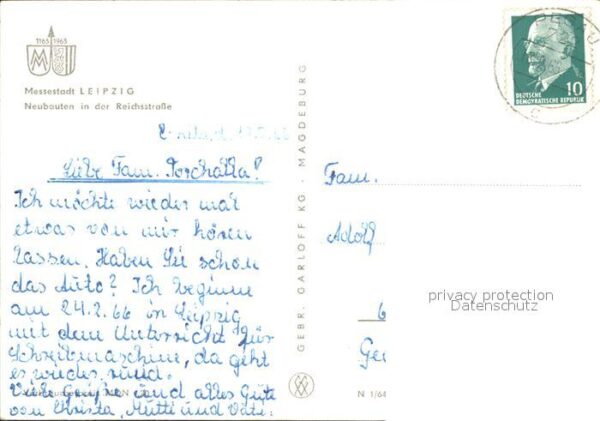 1165 1965
Messestadt LEIPZIG
Neubauten in der Reichsstraße
Liebe Fam. Porchatta!
Ich möchte wieder mal
etwas von mir hören
lassen. Haben Sie schon
das Auto? Ich beginne
am 24.2.66 in Leipzig
mit dem Unterricht für
Schreibmaschine, da geht
es wieder rund.
Viele Grüße und alles Gute
von Christa, Mutti und Vati.
GEBR. GARLOFF KG · MAGDEBURG
10
DEUTSCHE
DEMOKRATISCHE REPUBLIK
Fam.
Adolf
privacy protection
Datenschutz
6
Ge
N 1/64